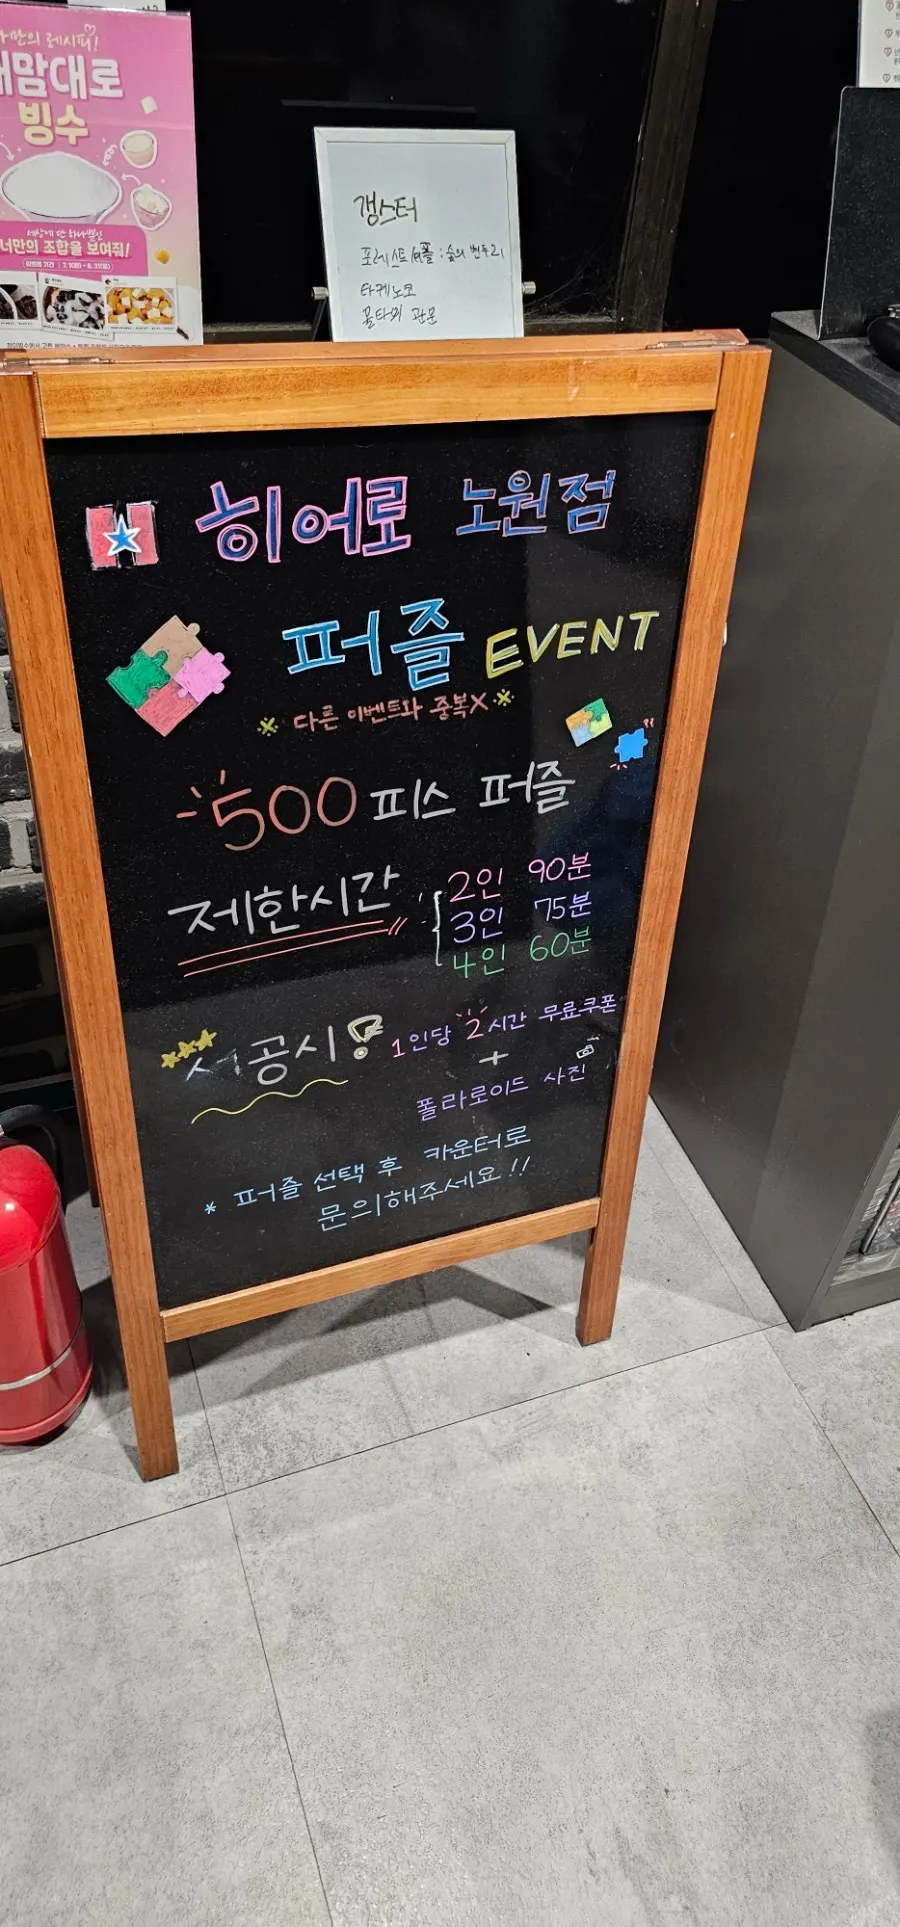 나만의 레시피!
내맘대로
빙수
세상에 단 하나뿐인
너만의 조합을 보여줘!
갱스터
포레스트 셔플 : 숲의 변두리
타케노코
꿀타워 관문
히어로 노원점
퍼즐 EVENT
다른 이벤트와 중복X
500 피스 퍼즐
제한시간
2인 90분
3인 75분
4인 60분
성공시!
1인당 2시간 무료쿠폰
+
폴라로이드 사진
* 퍼즐 선택 후 카운터로
문의해주세요!!